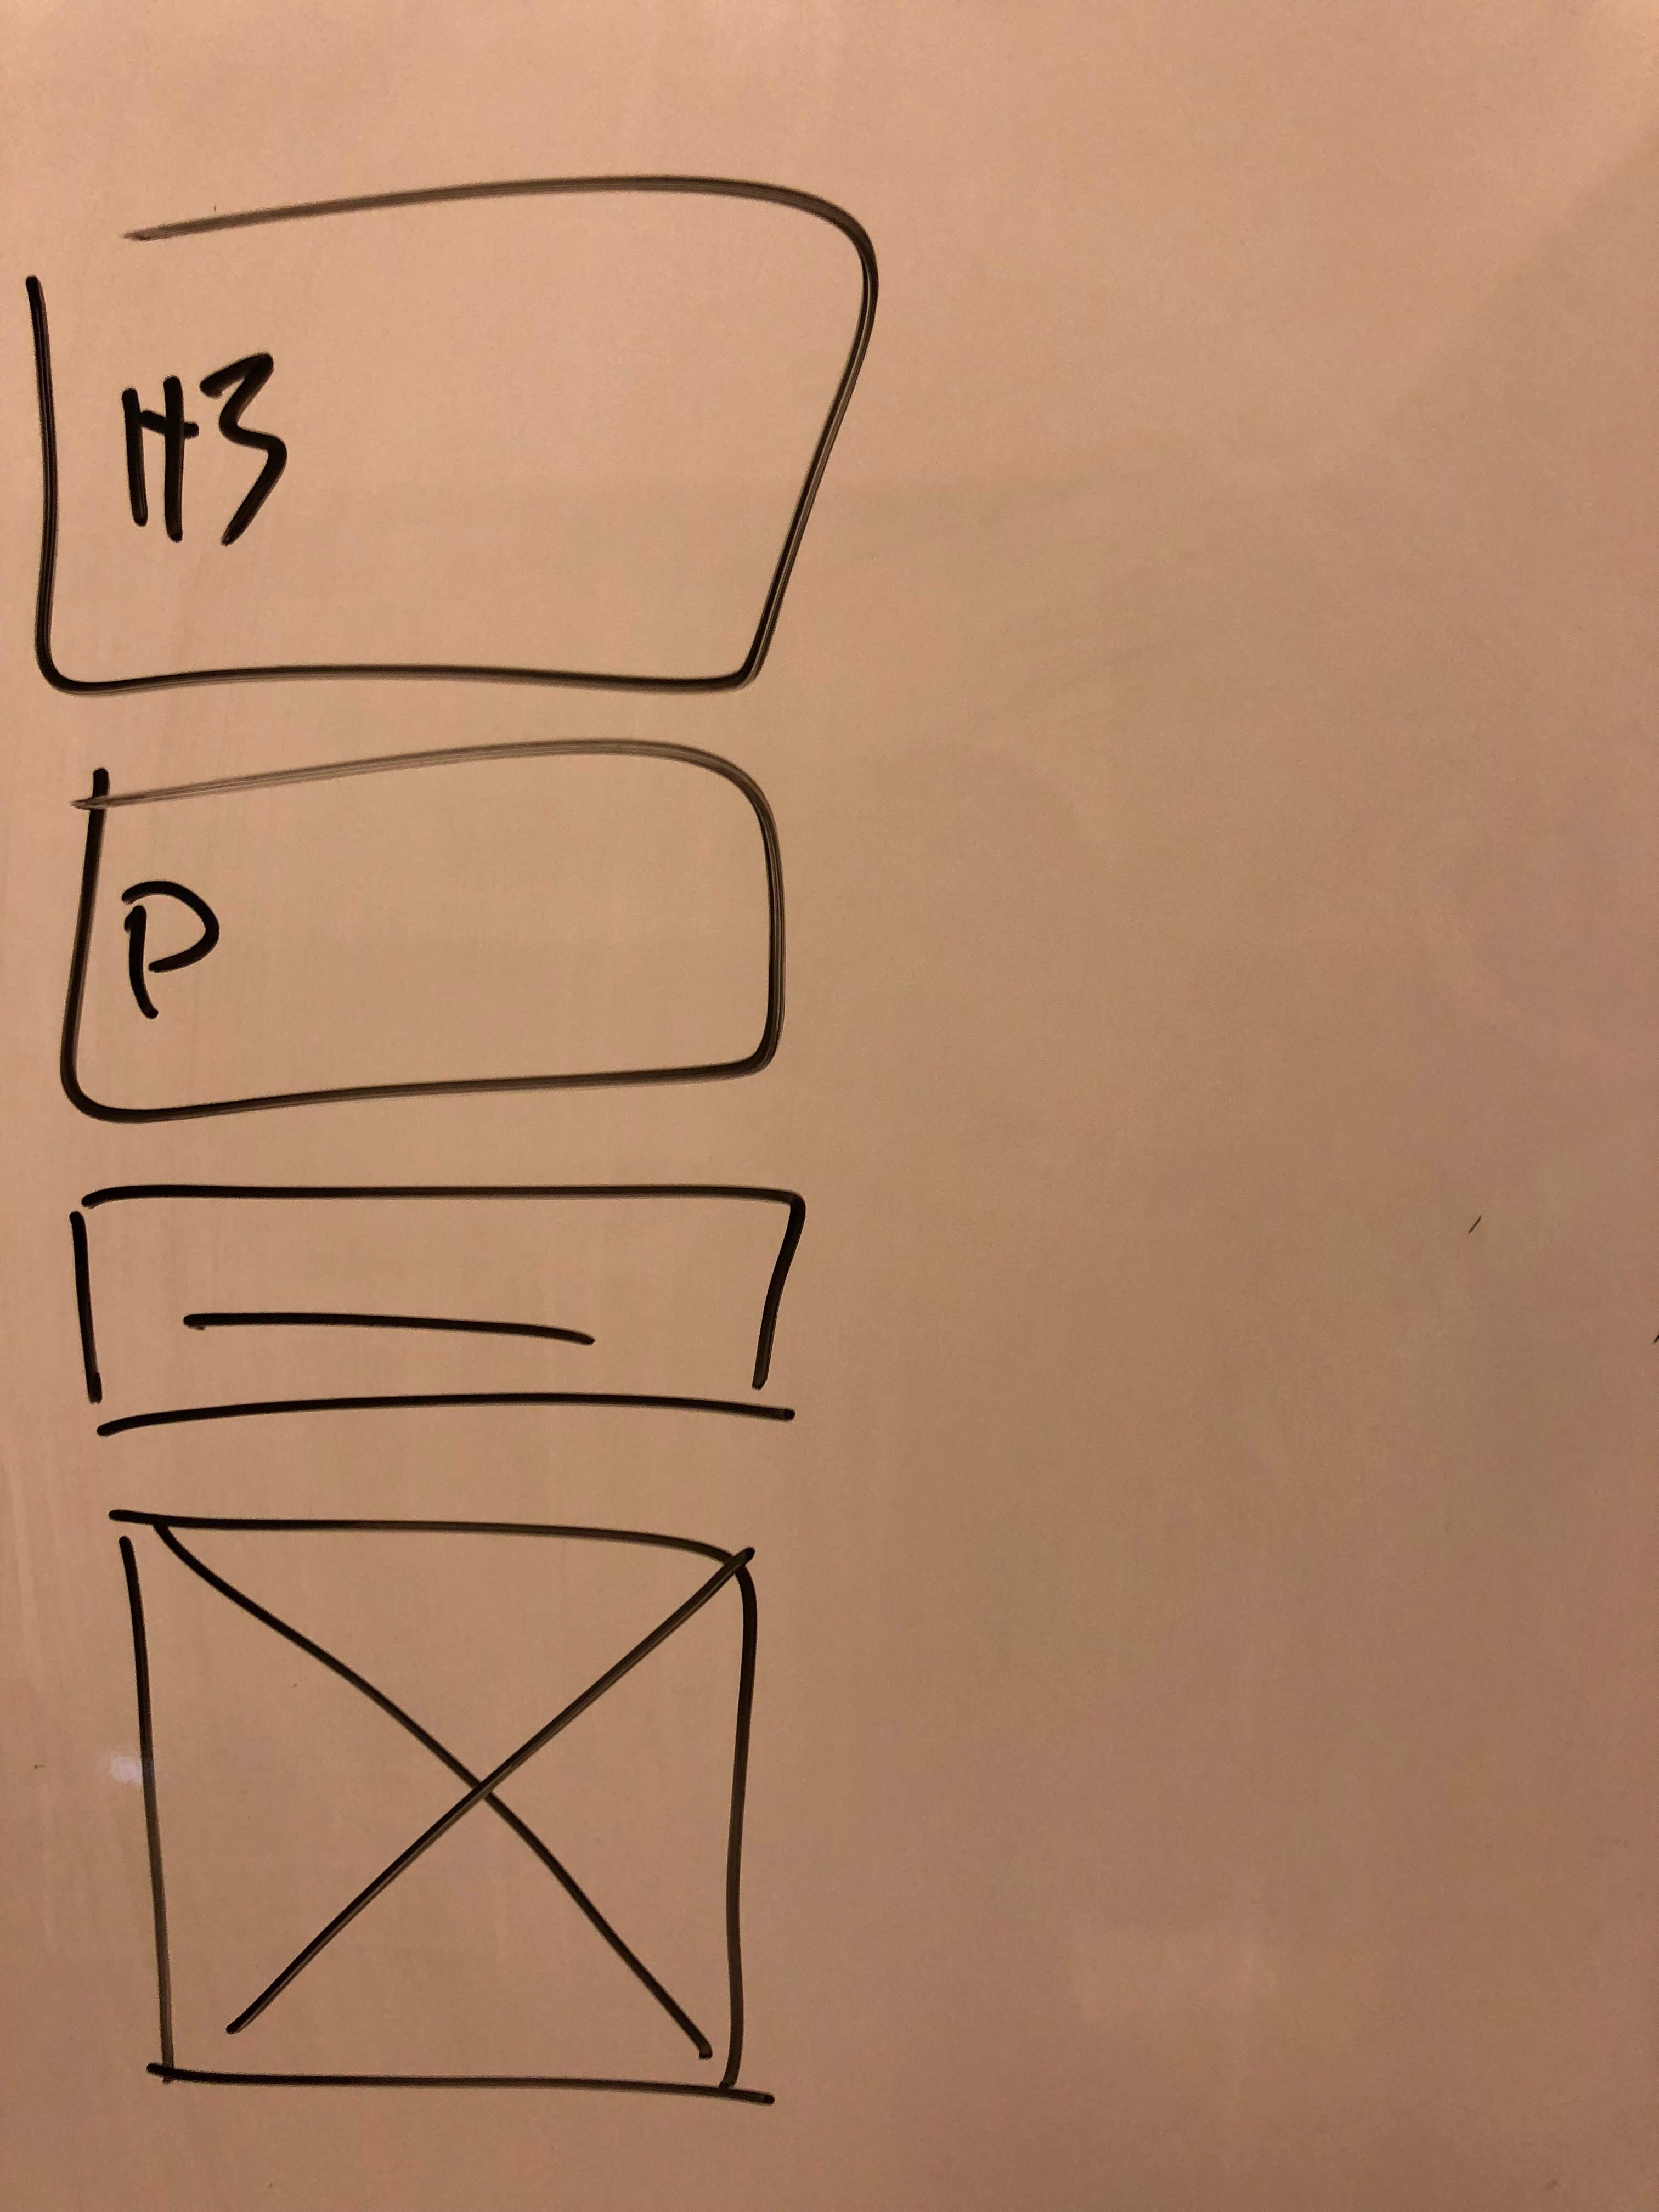 H3
P